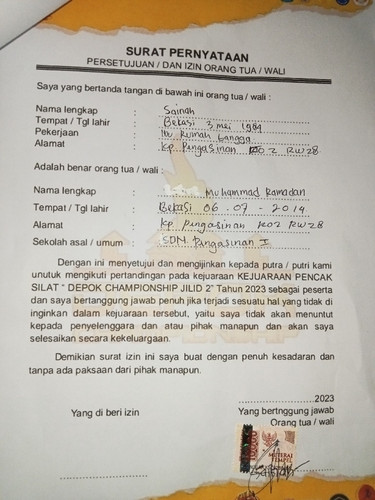 SURAT PERNYATAAN
PERSETUJUAN / DAN IZIN ORANG TUA / WALI
Saya yang bertanda tangan di bawah ini orang tua / wali :
Nama lengkap : Sainah
Tempat / Tgl lahir : Bekasi 3, mei 1984
Pekerjaan : Ibu Rumah tangga
Alamat : Kp Pengasinan R02 RW28
Adalah benar orang tua / wali :
Nama lengkap : Muhammad Ramadan
Tempat / Tgl lahir : Bekasi 06 - 07 - 2014
Alamat : Kp Pengasinan R02 RW28
Sekolah asal / umum : SDN Pengasinan I
Dengan ini menyetujui dan mengijinkan kepada putra / putri kami
unutuk mengikuti pertandingan pada kejuaraan KEJUARAAN PENCAK
SILAT " DEPOK CHAMPIONSHIP JILID 2" Tahun 2023 sebagai peserta
dan saya bertanggung jawab penuh jika terjadi sesuatu hal yang tidak di
inginkan dalam kejuaraan tersebut, yaitu saya tidak akan menuntut
kepada penyelenggara dan atau pihak manapun dan akan saya
selesaikan secara kekeluargaan.
Demikian surat izin ini saya buat dengan penuh kesadaran dan
tanpa ada paksaan dari pihak manapun.
........................2023
Yang di beri izin
Yang bertnggung jawab
Orang tua / wali
METERAI
TEMPEL